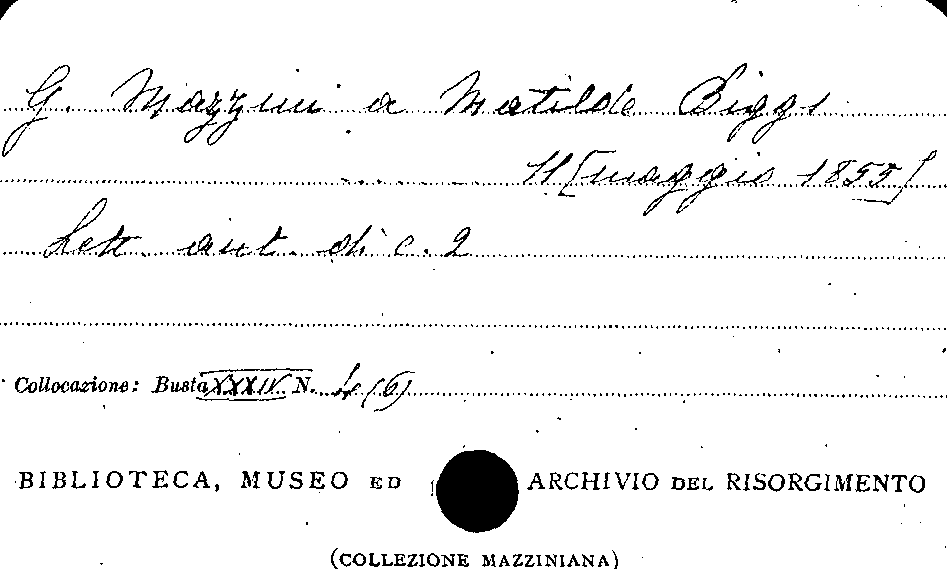 G. Mazzini a Matilde Biggs
11 [maggio 1855]
Lett. aut. di c. 2
Collocazione: Busta XXXIV N. 4 (6)
BIBLIOTECA, MUSEO ED ARCHIVIO DEL RISORGIMENTO
(COLLEZIONE MAZZINIANA)